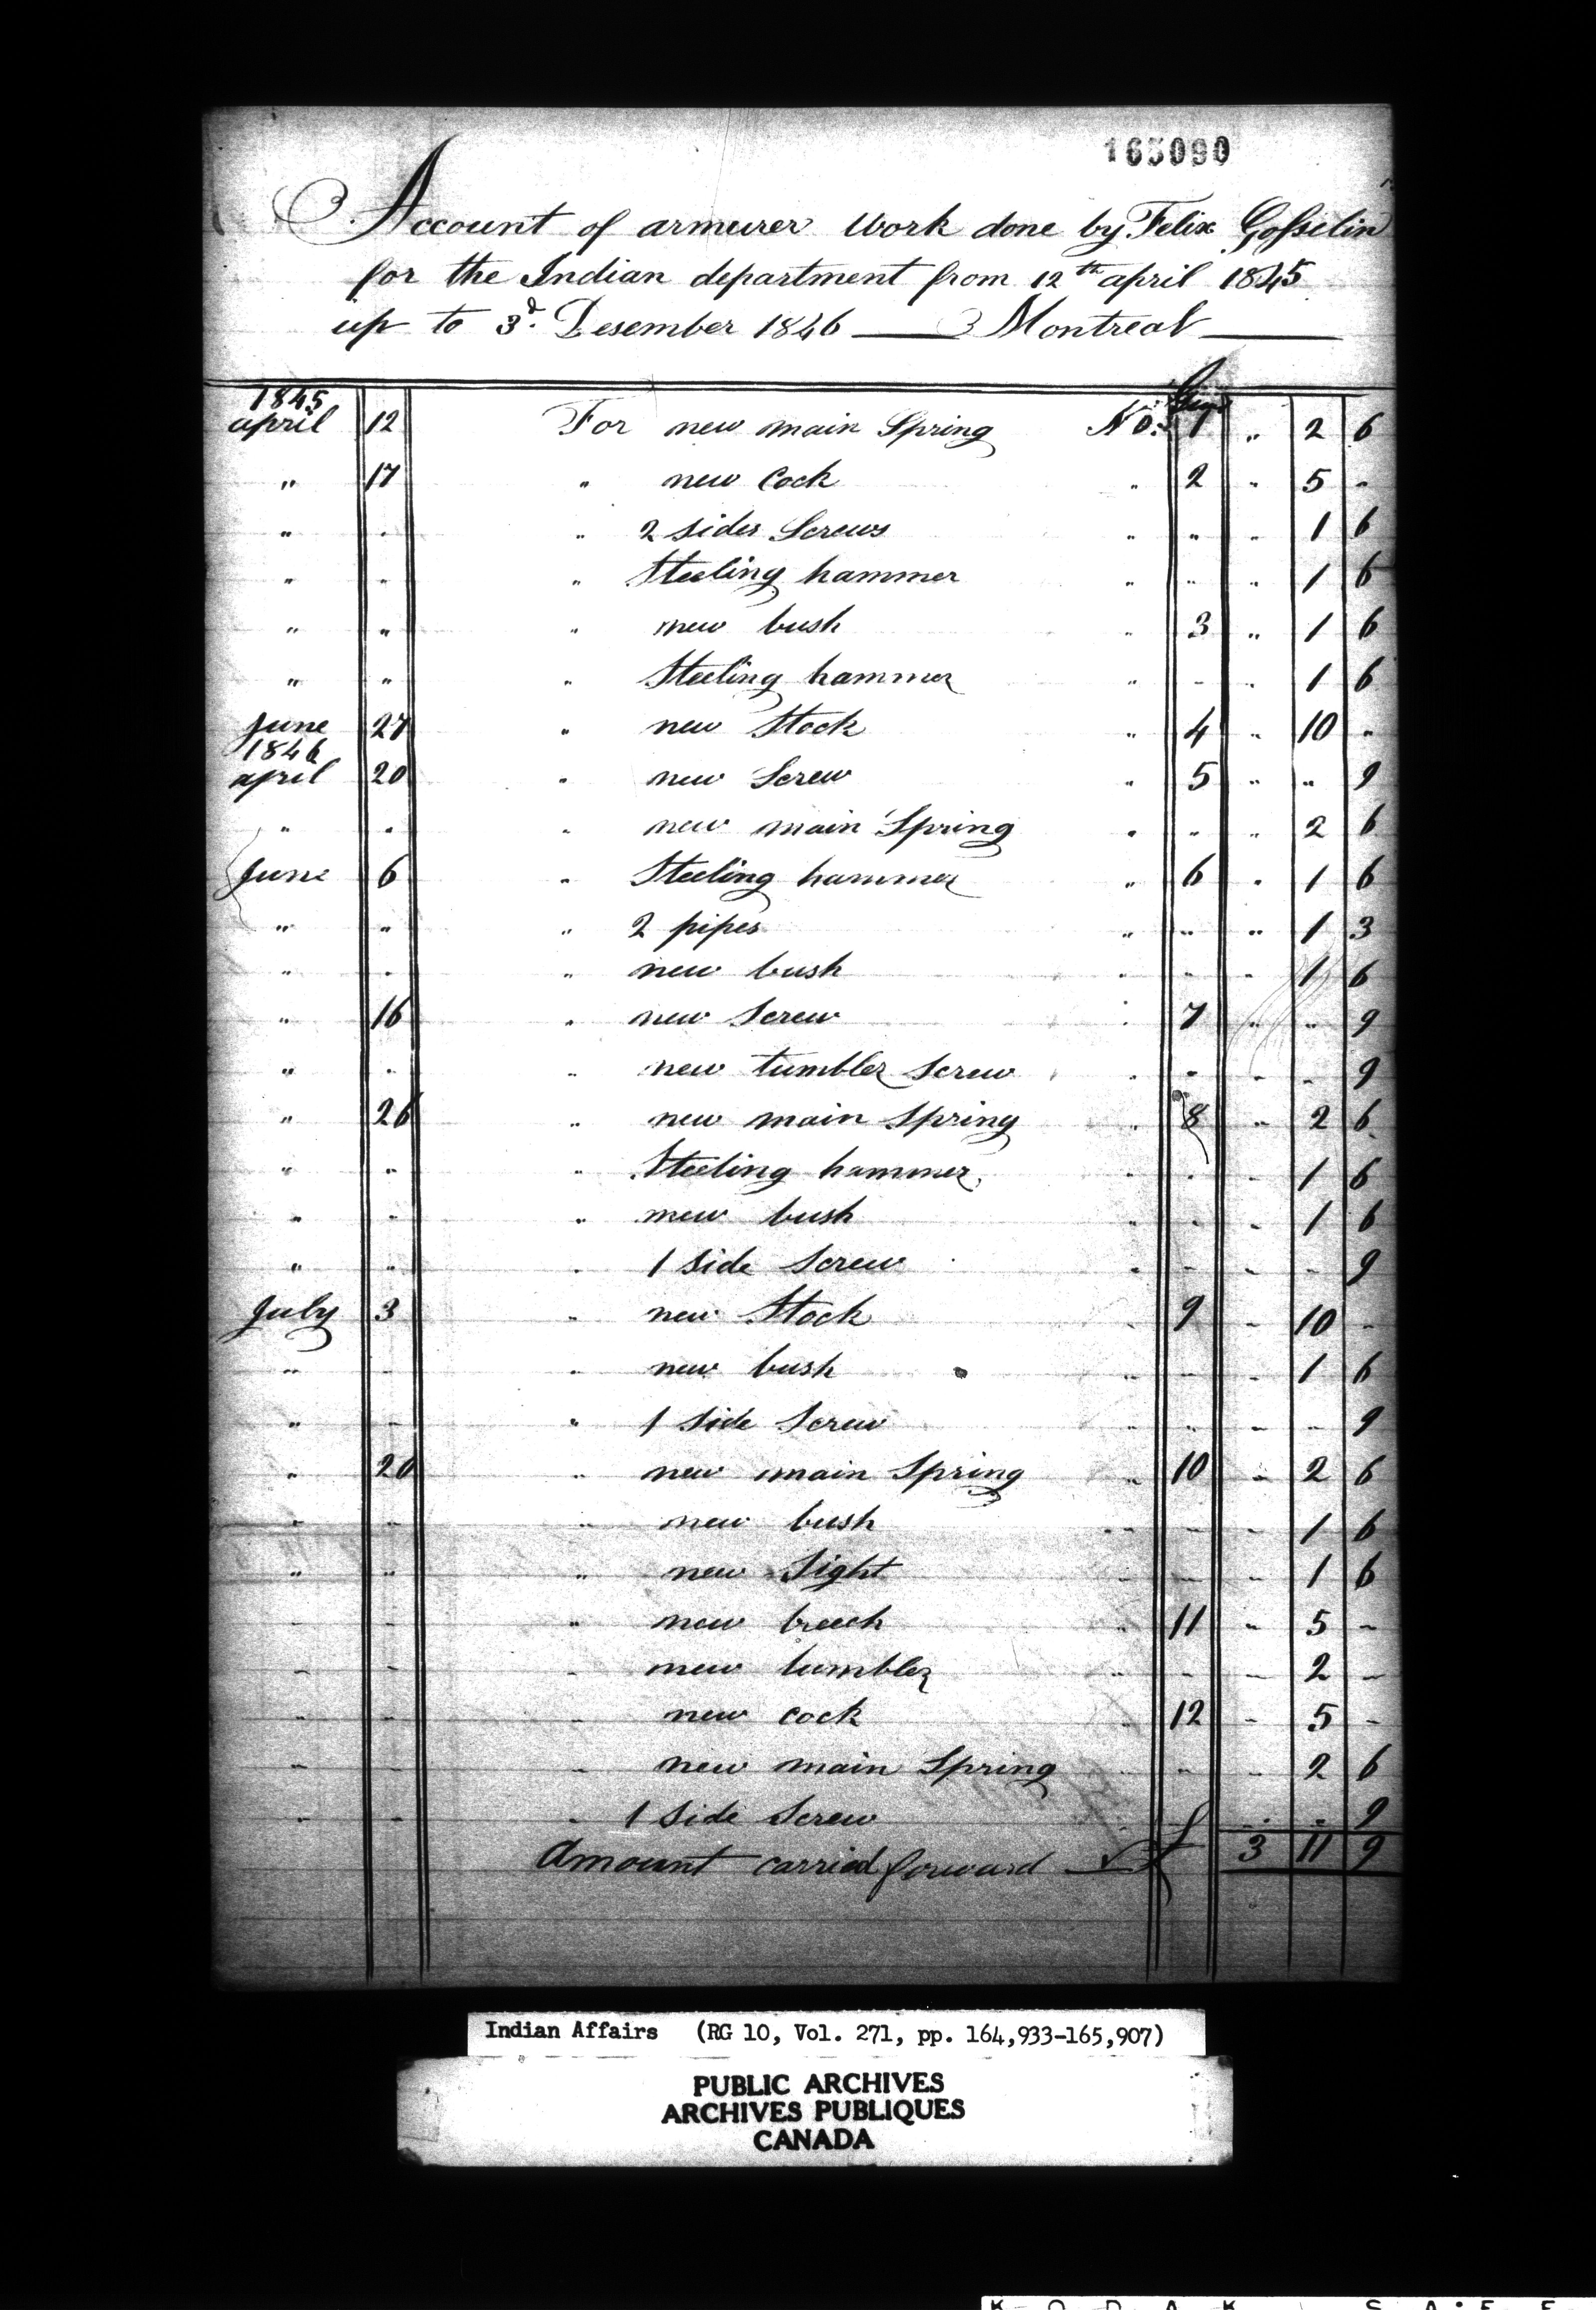 165090
Account of armurer Work done by Felix Gosselin
for the Indian department from 12th april 1845
up to 3d. Desember 1846 Montreal
1845 Guns
april 12 For new main Spring No. 1 " 2 6
" 17 " new Cock " 2 " 5 "
" " " 2 sides Screws " " " 1 6
" " " Steeling hammer " " " 1 6
" " " new bush " 3 " 1 6
" " " Steeling hammer " " " 1 6
June 27 " new Stock " 4 " 10 "
1846
april 20 " new Screw " 5 " " 9
" " " new main Spring " " " 2 6
June 6 " Steeling hammer " 6 " 1 6
" " " 2 pipes " " " 1 3
" " " new bush " " " 1 6
" 16 " new Screw " 7 " " 9
" " " new tumbler Screw " " " " 9
" 26 " new main Spring " 8 " 2 6
" " " Steeling hammer " " " 1 6
" " " new bush " " " 1 6
" " " 1 side Screw " " " " 9
July 3 " new Stock " 9 " 10 "
" " " new bush " " " 1 6
" " " 1 side Screw " " " " 9
" 20 " new main Spring " 10 " 2 6
" " " new bush " " " 1 6
" " " new Sight " " " 1 6
" " " new breech " 11 " 5 "
" " " new tumbler " " " 2 "
" " " new cock " 12 " 5 "
" " " new main Spring " " " 2 6
" " " 1 side Screw " " " " 9
Amount carried forward £ 3 11 9
Indian Affairs (RG 10, Vol. 271, pp. 164,933-165,907)
PUBLIC ARCHIVES
ARCHIVES PUBLIQUES
CANADA
KODAK SAFE